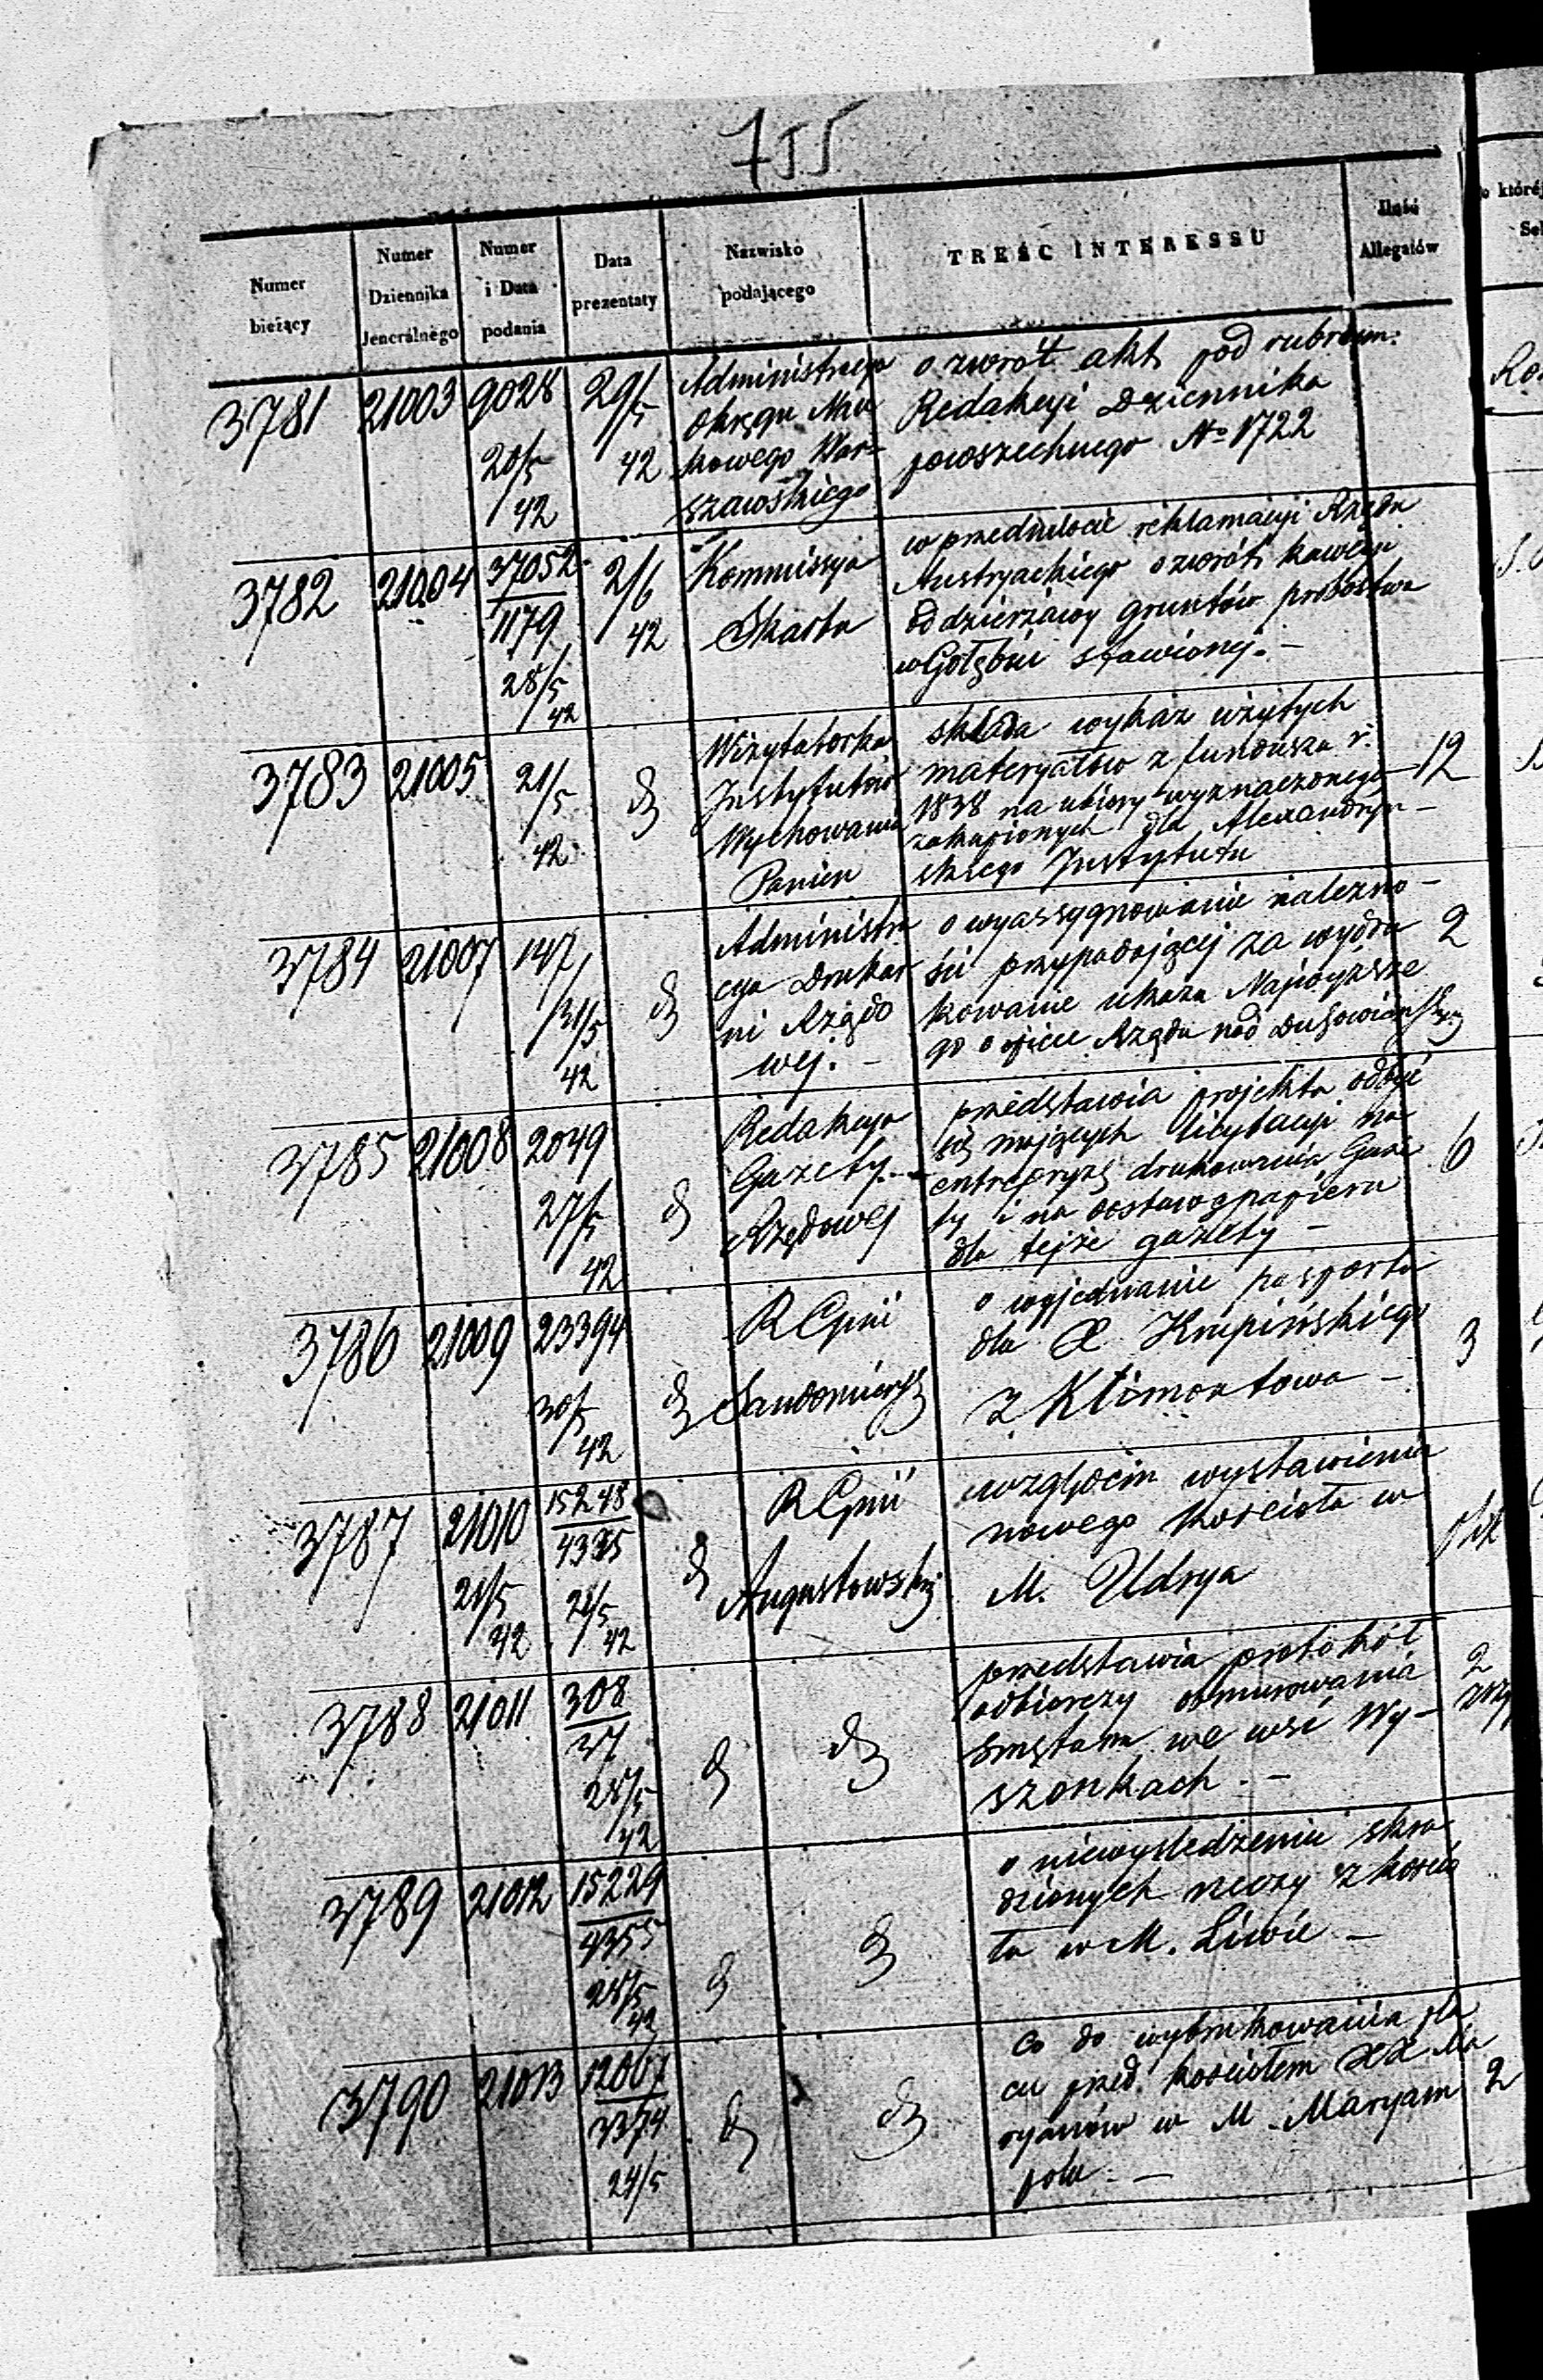 755
Numer bieżący
Numer Dziennika Jeneralnego
Numer i Data podania
Data prezentaty
Nazwisko podającego
TREŚĆ INTERESSU
Ilość Allegatów
3781 21003 9028 20/5 42 29/5 42
Administracya
Okręgu Nau
kowego War-
szawskiego
o zwrót akt pod rubrum:
Redakcyi Dziennika
powszechnego No 1722
3782 21004 37052 1179 28/5 42 2/6 42
Kommissya
Skarbu
w przedmiocie reklamacyi Rządu
Austryackiego o zwrót kaucyi
od dzierżawy gruntów probostwa
w Gołębiu stawionej. -
3783 21005 21/5 42 d
Wizytatorka
Instytutów
Wychowania
Panien
składa wykaz użytych
materyałów z funduszu r.
1838 na ubiory wyznaczonego
zakupionych dla Alexandryn-
skiego Instytutu
12
3784 21007 147 31/5 42 d
Administra
cya Drukar
ni Rządo
wej. -
o wyassygnowanie należno-
ści przypadającej za wydru
kowanie ukazu Najwyższe
go o opiece Rządu nad Duchowieństwem
2
3785 21008 2049 27/5 42 d
Redakcya
Gazety
Rządowej
przedstawia projekta odbyć
się mających licytacyi na
entrepryzę drukowania Gaze
ty i na dostawę papieru
dla tejże gazety -
6
3786 21009 23394 30/5 42 d
R Gnii
Sandomiersk
o wyjednanie pasportu
dla X Krupińskiego
z Klimontowa -
3
3787 21010 28/5 42 15248 4335 28/5 42 d
R Gnii
Augustowskiej
względem wystawienia
nowego kościoła w
M. Udrya
plik
3788 21011 308 37 28/5 42 d d
przedstawia protokół
odbiorczy obmurowania
smętarza we wsi Wy-
szonkach. -
2
3789 21012 15229 4355 28/5 42 d d
o niewyśledzeniu skra
dzionych rzeczy z kościo
ła w M. Liwie -
3790 21013 12067 3374 24/5 d d
co do wybrukowania pla
cu przed kościołem XX Ma
ryanów w M. Maryam
polu. -
2